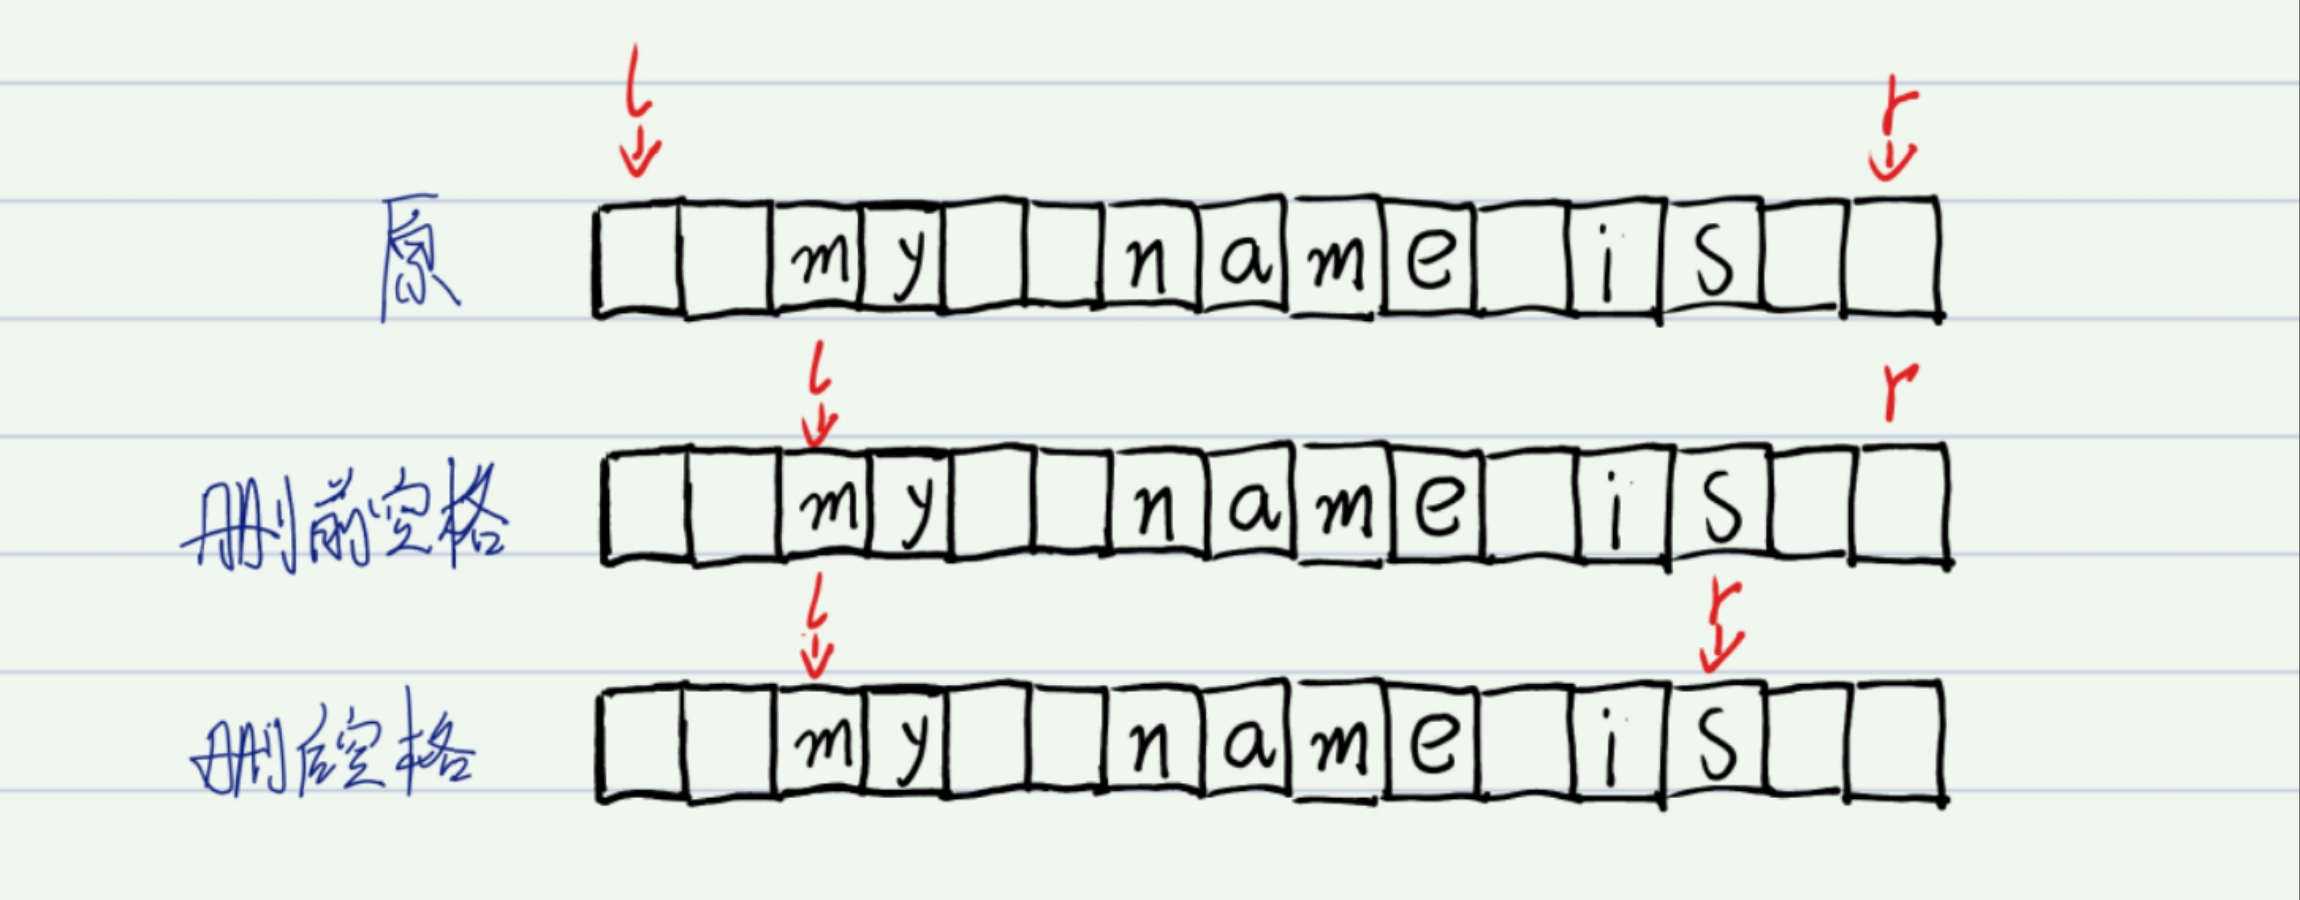 l r
原 my name is
l r
删前空格 my name is
l r
删后空格 my name is